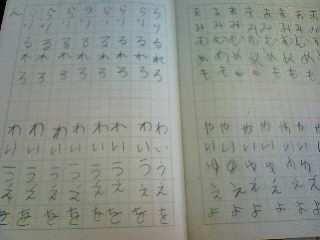 ん ら ら ら ら ら ら ら
り り り り り り り
る る る る る る る
れ れ れ れ れ れ れ
ろ ろ ろ ろ ろ ろ ろ
わ わ わ わ わ わ わ わ
い い い い い い い い
う う う う う う う う
え え え え え え え え
を を を を を を を を
ま ま ま ま ま ま
み み み み み み
む む む む む む
め め め め め め
も も も も も も
や や や や や や や
い い い い い い い
ゆ ゆ ゆ ゆ ゆ ゆ ゆ
え え え え え え え
よ よ よ よ よ よ よ